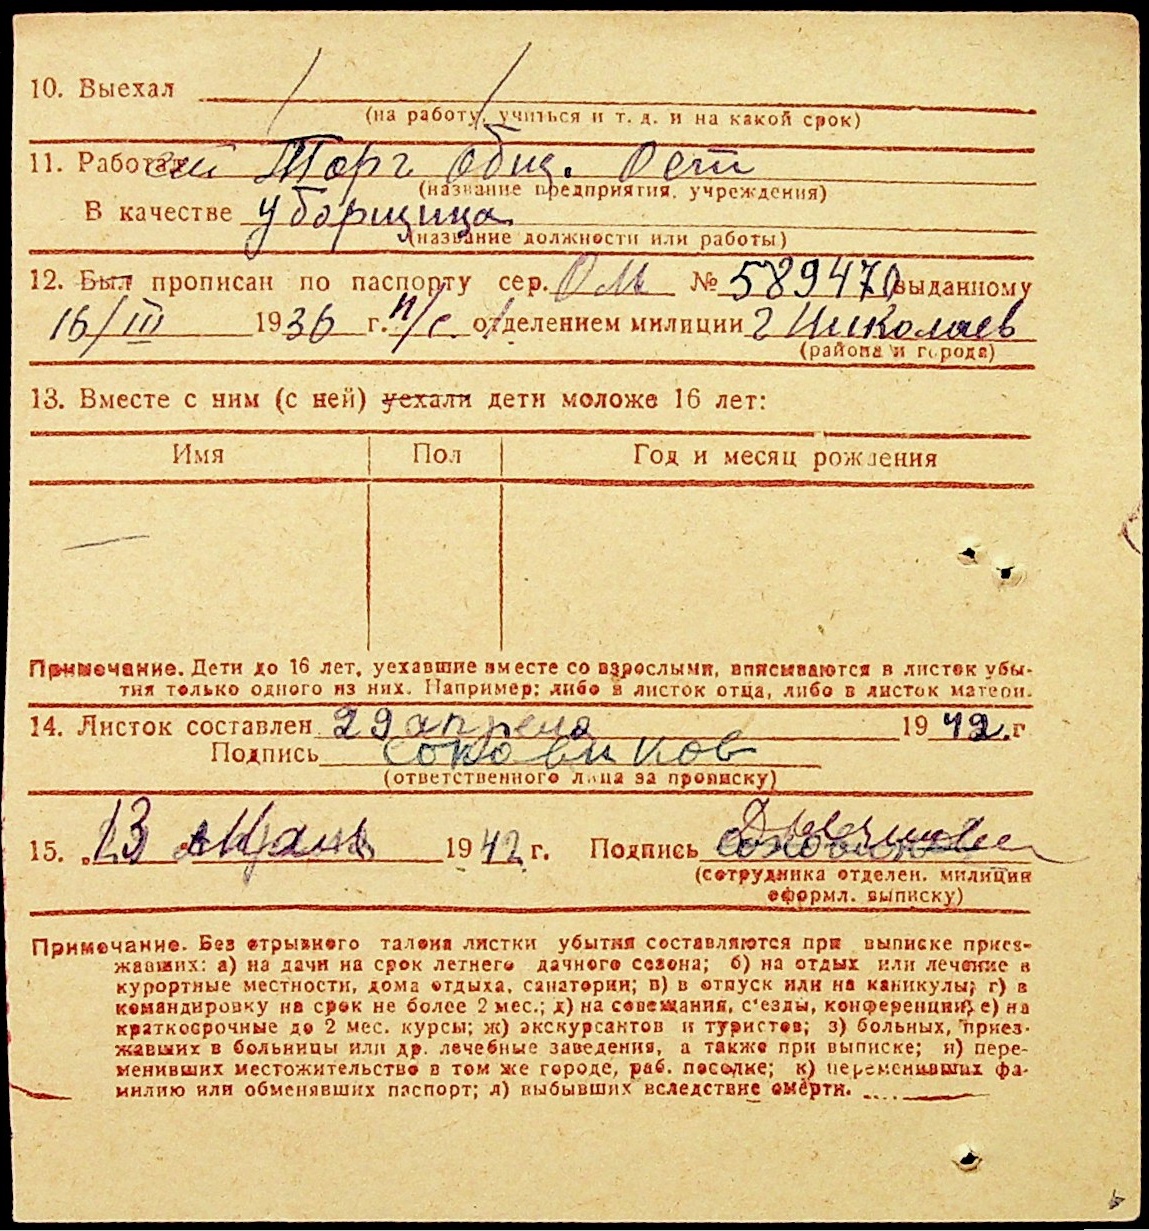 10. Выехал
(на работу, учиться и т. д. и на какой срок)
11. Работал Торг общ.
(название предприятия, учреждения)
В качестве уборщица
(название должности или работы)
12. Был прописан по паспорту сер. ОМ № 589470 выданному
16/III 1936 г. н/с отделением милиции г Николаев
(района и города)
13. Вместе с ним (с ней) уехали дети моложе 16 лет:
Имя Пол Год и месяц рождения
Примечание. Дети до 16 лет, уехавшие вместе со взрослыми, вписываются в листок убы-
тия только одного из них. Например: либо в листок отца, либо в листок матери.
14. Листок составлен 29 апреля 1942 г
Подпись Соковиков
(ответственного лица за прописку)
15. 1942 г. Подпись
(сотрудника отделен. милиции
оформл. выписку)
Примечание. Без отрывного талона листки убытия составляются при выписке приез-
жавших: а) на дачи на срок летнего дачного сезона; б) на отдых или лечение в
курортные местности, дома отдыха, санатории; в) в отпуск или на каникулы; г) в
командировку на срок не более 2 мес.; д) на совещания, с'езды, конференции; е) на
краткосрочные до 2 мес. курсы; ж) экскурсантов и туристов; з) больных, приез-
жавших в больницы или др. лечебные заведения, а также при выписке; и) пере-
менивших местожительство в том же городе, раб. поселке; к) переменивших фа-
милию или обменявших паспорт; л) выбывших вследствие смерти.